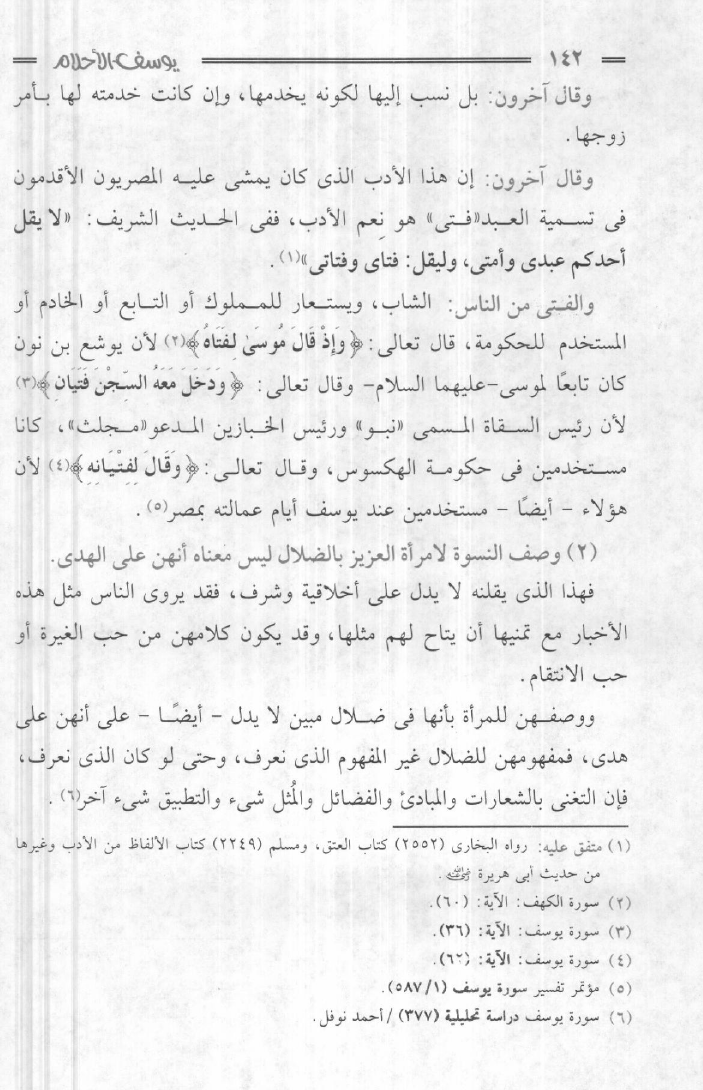 ١٤٢ يوسف الأحلام
وقال آخرون: بل نسب إليها لكونه يخدمها، وإن كانت خدمته لها بـأمر
زوجها.
وقال آخرون: إن هذا الأدب الذى كان يمشى عليـه المصريون الأقدمون
فى تسـمية العـبد«فـتى» هو نِعم الأدب، ففى الحـديث الشريف: «لا يقل
أحدكم عبدى وأمتى، وليقل: فتاى وفتاتى»(١).
والفـتى من الناس: الشاب، ويستـعار للمـملوك أو التـابع أو الخادم أو
المستخدم للحكومة، قال تعالى: ﴿وَإِذْ قَالَ مُوسَىٰ لِفَتَاهُ﴾(٢) لأن يوشع بن نون
كان تابعًا لموسى-عليهما السلام- وقال تعالى: ﴿وَدَخَلَ مَعَهُ السِّجْنَ فَتَيَانِ﴾(٣)
لأن رئيس السـقاة المـسمى «نبـو» ورئيس الخـبازين المـدعو«مـجلث»، كانا
مسـتخدمين فى حكومـة الهكسوس، وقـال تعالـى: ﴿وَقَالَ لِفِتْيَانِهِ﴾(٤) لأن
هؤلاء - أيضًا - مستخدمين عند يوسف أيام عمالته بمصر(٥).
(٢) وصف النسوة لامرأة العزيز بالضلال ليس معناه أنهن على الهدى.
فهذا الذى يقلنه لا يدل على أخلاقية وشرف، فقد يروى الناس مثل هذه
الأخبار مع تمنيها أن يتاح لهم مثلها، وقد يكون كلامهن من حب الغيرة أو
حب الانتقام.
ووصفـهن للمرأة بأنها فى ضـلال مبين لا يدل - أيضًـا - على أنهن على
هدى، فمفهومهن للضلال غير المفهوم الذى نعرف، وحتى لو كان الذى نعرف،
فإن التغنى بالشعارات والمبادئ والفضائل والمُثل شىء والتطبيق شىء آخر(٦).
(١) متفق عليه: رواه البخارى (٢٥٥٢) كتاب العتق، ومسلم (٢٢٤٩) كتاب الألفاظ من الأدب وغيرها
من حديث أبى هريرة رضي الله عنه.
(٢) سورة الكهف: الآية: (٦٠).
(٣) سورة يوسف: الآية: (٣٦).
(٤) سورة يوسف: الآية: (٦٢).
(٥) مؤتمر تفسير سورة يوسف (٥٨٧/١).
(٦) سورة يوسف دراسة تحليلية (٣٧٧) / أحمد نوفل.